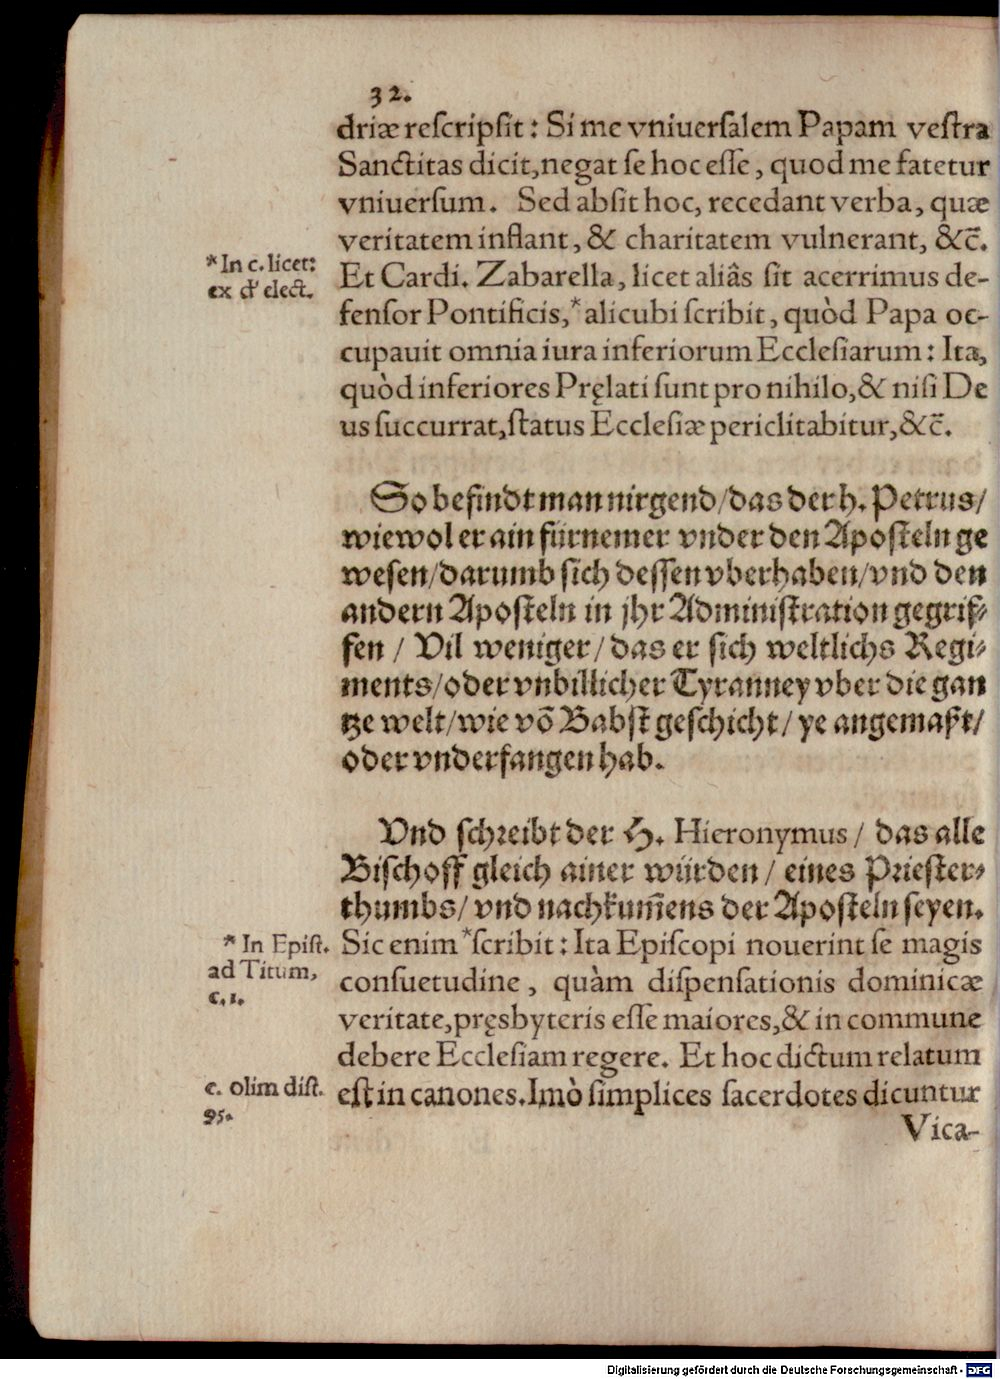 32.
driæ reſcripſit: Si me vniuerſalem Papam veſtra
Sanctitas dicit, negat ſe hoc eſſe, quod me fatetur
vniuerſum. Sed abſit hoc, recedant verba, quæ
veritatem inflant, & charitatem vulnerant, &c̃.
*In c. licet:
ex đ elect.
Et Cardi. Zabarella, licet aliâs ſit acerrimus de-
fenſor Pontificis,* alicubi ſcribit, quòd Papa oc-
cupauit omnia iura inferiorum Eccleſiarum: Ita,
quòd inferiores Pręlati ſunt pro nihilo, & niſi De
us ſuccurrat, ſtatus Eccleſiæ periclitabitur, &c̃.
So befindt man nirgend/ das der h. Petrus/
wiewol er ain fürnemer vnder den Apoſteln ge
weſen/ darumb ſich deſſen vberhaben/ vnd den
andern Apoſteln in jhr Adminiſtration gegrif⸗
fen / Vil weniger/ das er ſich weltlichs Regi⸗
ments/ oder vnbillicher Tyranney vber die gan
tze welt/ wie võ Babſt geſchicht/ ye angemaßt/
oder vnderfangen hab.
Vnd ſchreibt der H. Hieronymus/ das alle
Biſchoff gleich ainer würden/ eines Prieſter⸗
thumbs/ vnd nachkum̃ens der Apoſteln ſeyen.
* In Epiſt.
ad Titum,
c. 1.
Sic enim *ſcribit: Ita Epiſcopi nouerint ſe magis
conſuetudine, quàm diſpenſationis dominicæ
veritate, pręsbyteris eſſe maiores, & in commune
debere Eccleſiam regere. Et hoc dictum relatum
c. olim diſt.
95.
eſt in canones. Imò ſimplices ſacerdotes dicuntur
Vica-
Digitalisierung gefördert durch die Deutsche Forschungsgemeinschaft - DFG